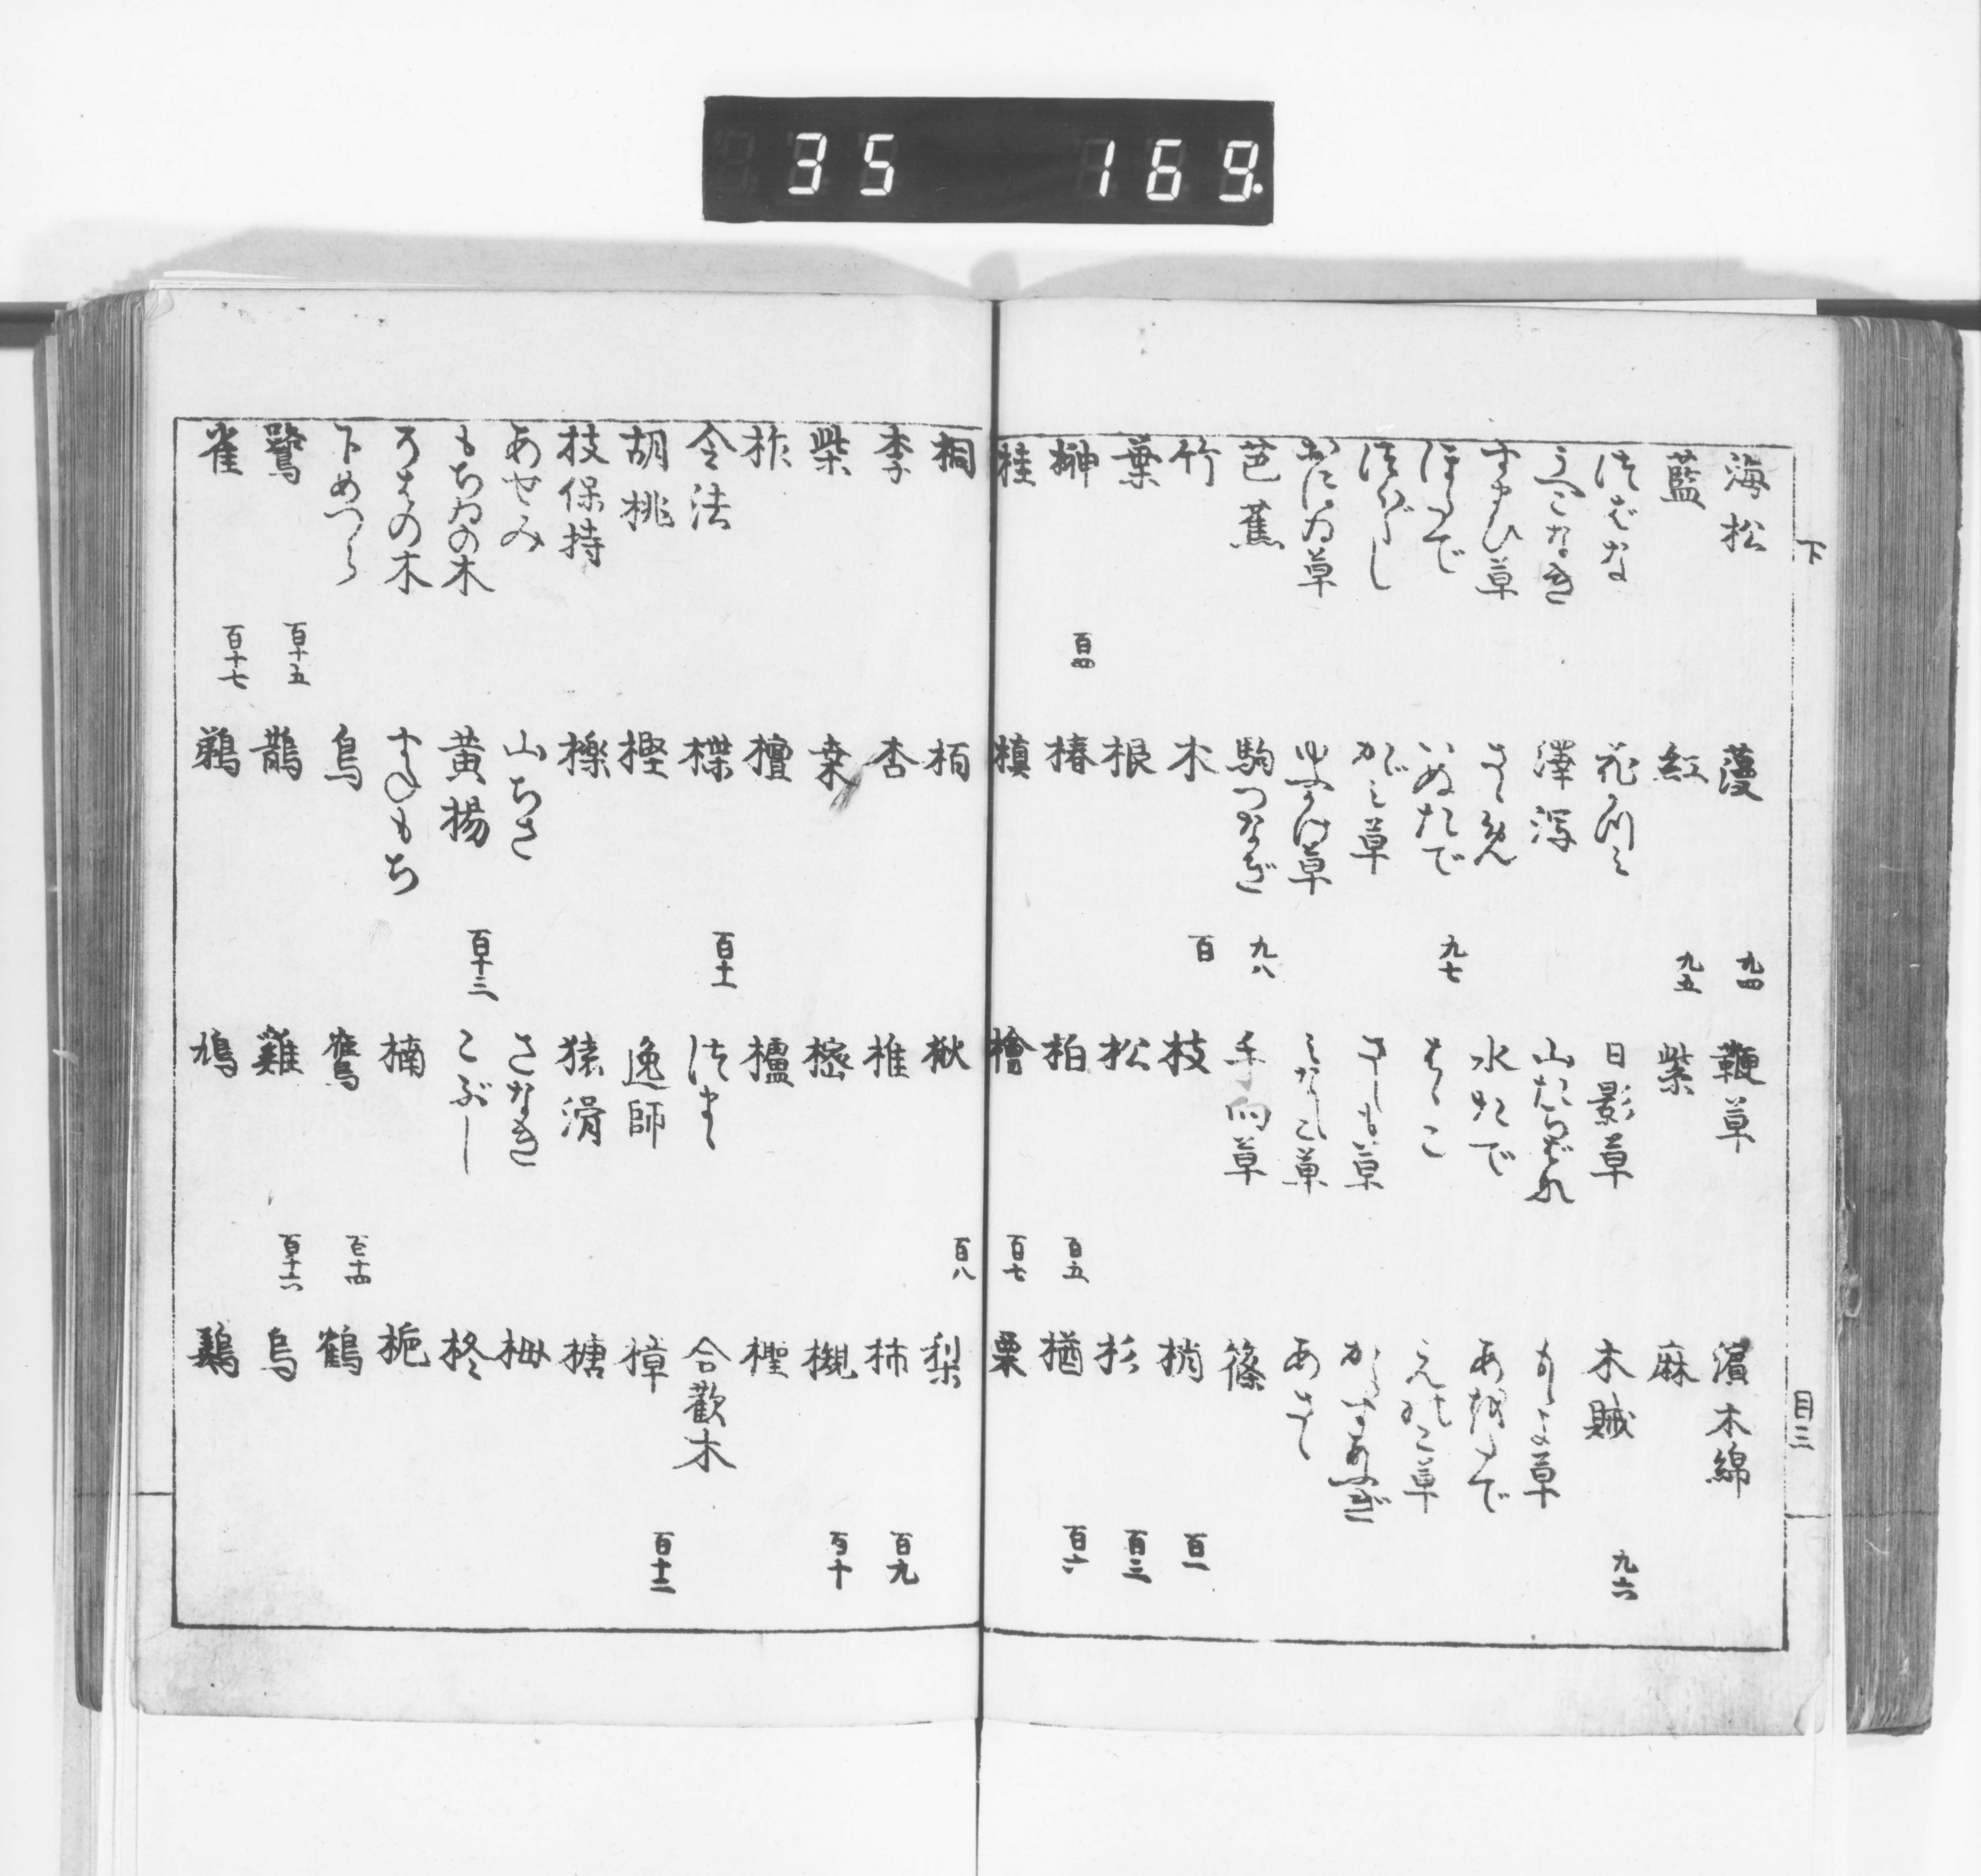 35 169.
下
海松 蔓 九四 鞭草 濱木綿
藍 紅 九五 紫 麻
つばな 花かつみ 日影草 木賊 九六
うつこなき 澤瀉 山たちばな もしほ草
すまひ草 さくめ 水たで
ほたで いぬたで 九七 はゝこ えのこ草
つゝじ かゞみ草 さしも草 からすあふぎ
おにのしこ草 ゆふかけ草 みなし子草 あさゝ
芭蕉 駒つなぎ 九八 手向草 篠
竹 木 百 枝 梢 百一
葉 根 松 杉 百三
榊 百四 椿 柏 百五 楢 百六
桂 槙 檜 百七 栗
桐 栢 楸 百八 梨
李 杏 椎 柿 百九
柴 桒 樒 槻 百十
柞 檀 櫨 檉
令法 楪 百十一 つまゝ 合歡木
胡桃 樫 逸師 樟 百十二
枝保持 櫟 猿滑 榶
あせみ 山ちさ さなき 栂
もちゐの木 黄楊 百十三 こぶし 柊
そまの木 すみもち 楠 梔
下めづら 鳥 鷹 百十四 鶴
鶯 百十五 鵲 雞 百十六 烏
雀 百十七 鵜 鳩 鷄
目三